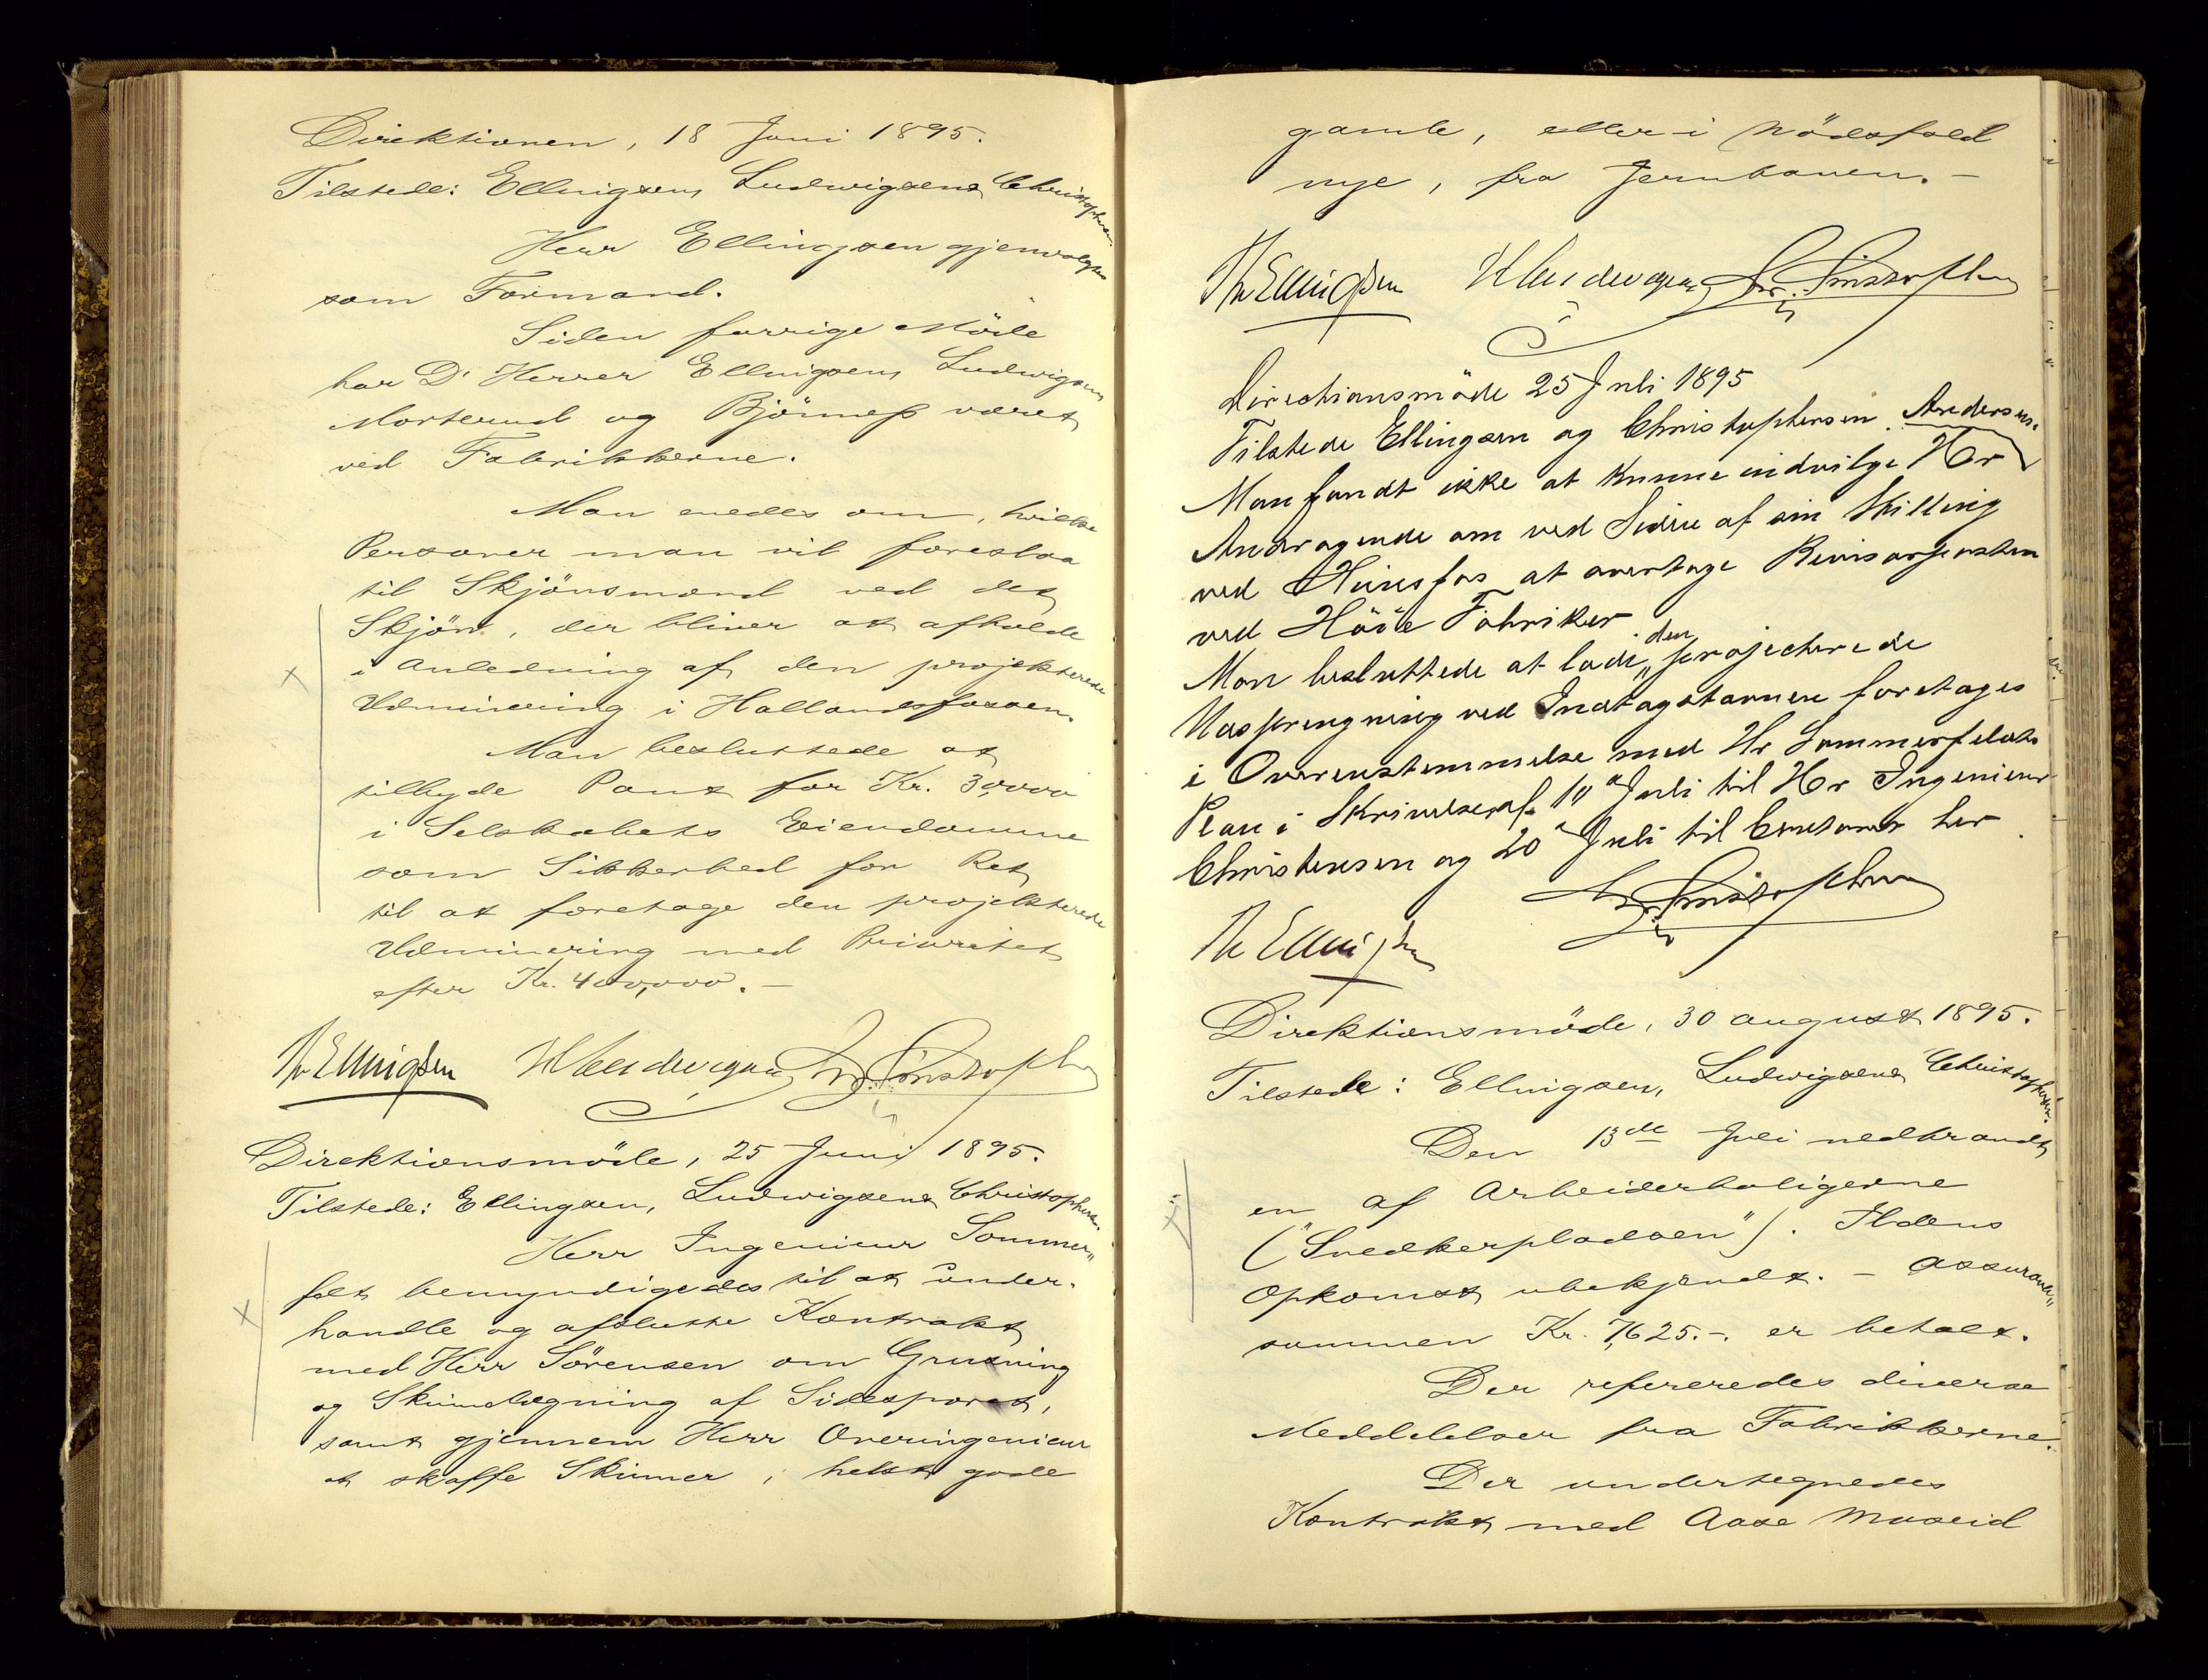 Direktionen, 18 Juni 1895.
Tilstede: Ellingsen, Ludwigsen & Christophersen.
Herr Ellingsen gjenvalgtes
som Formand.
Siden forrige Möde
har D' Herrer Ellingsen, Ludwigsen,
Morterud og Björneß været
ved Fabrikkerne.
Man enedes om, hvilke
Personer man vil foreslaa
til Skjönsmænd ved det
Skjön, der bliver at afholde
i Anledning af den projekterede
Udminering i Hallandsfossen.
Man besluttede at
tilbyde Pant for Kr. 30,000
i Selskabets Eiendomme
som Sikkerhed for Ret
til at foretage den projekterede
Udminering med Prioritet
efter Kr. 400,000.-
Th Ellingsen H Ludwigsen Chr. Christophersen
Direktionsmöde, 25 Juni 1895.
Tilstede: Ellingsen, Ludwigsen & Christophersen.
Herr Ingenieur Sommer„
felt bemyndigedes til at under-
handle og afslutte Kontrakt
med Herr Sörensen om Grusning
og Skinnelægning af Sidesporet,
samt gjennem Herr Overingenieur
at skaffe Skinner, helst gode
gamle, eller i Nödsfald
nye, fra Jernbanen.-
Th Ellingsen H Ludwigsen Chr. Christophersen
Directionsmöde 25 Juli 1895
Tilstede Ellingsen og Christophersen.
Man fandt ikke at kunne indvilge Hr Andersens
Andragende om ved Siden af sin Stilling
ved Hunsfos at overtage Revisorposten
ved Höie Fabriker
Man besluttede at lade „den projecterede
Udsprengning ved Indtagstarmen foretages
i Overenstemmelse med Hr Sommerfeldts
Plan i Skrivelse af 11 Juli til Hr Ingenieur
Christensen og 20 Juli til Contoret her
Chr. Christophersen
Th Ellingsen
Direktionsmöde, 30 August 1895.
Tilstede: Ellingsen, Ludwigsen & Christophersen.
Den 13de Juli nedbrandt
en af Arbeiderboligerne
("Snedkerpladsen"). Ildens
Opkomst ubekjendt. - Assurance„
summen Kr. 7,625.-. er betalt.
Der refereredes diverse
Meddelelser fra Fabrikkerne.
Der undertegnedes
Kontrakt med Aase Moseid